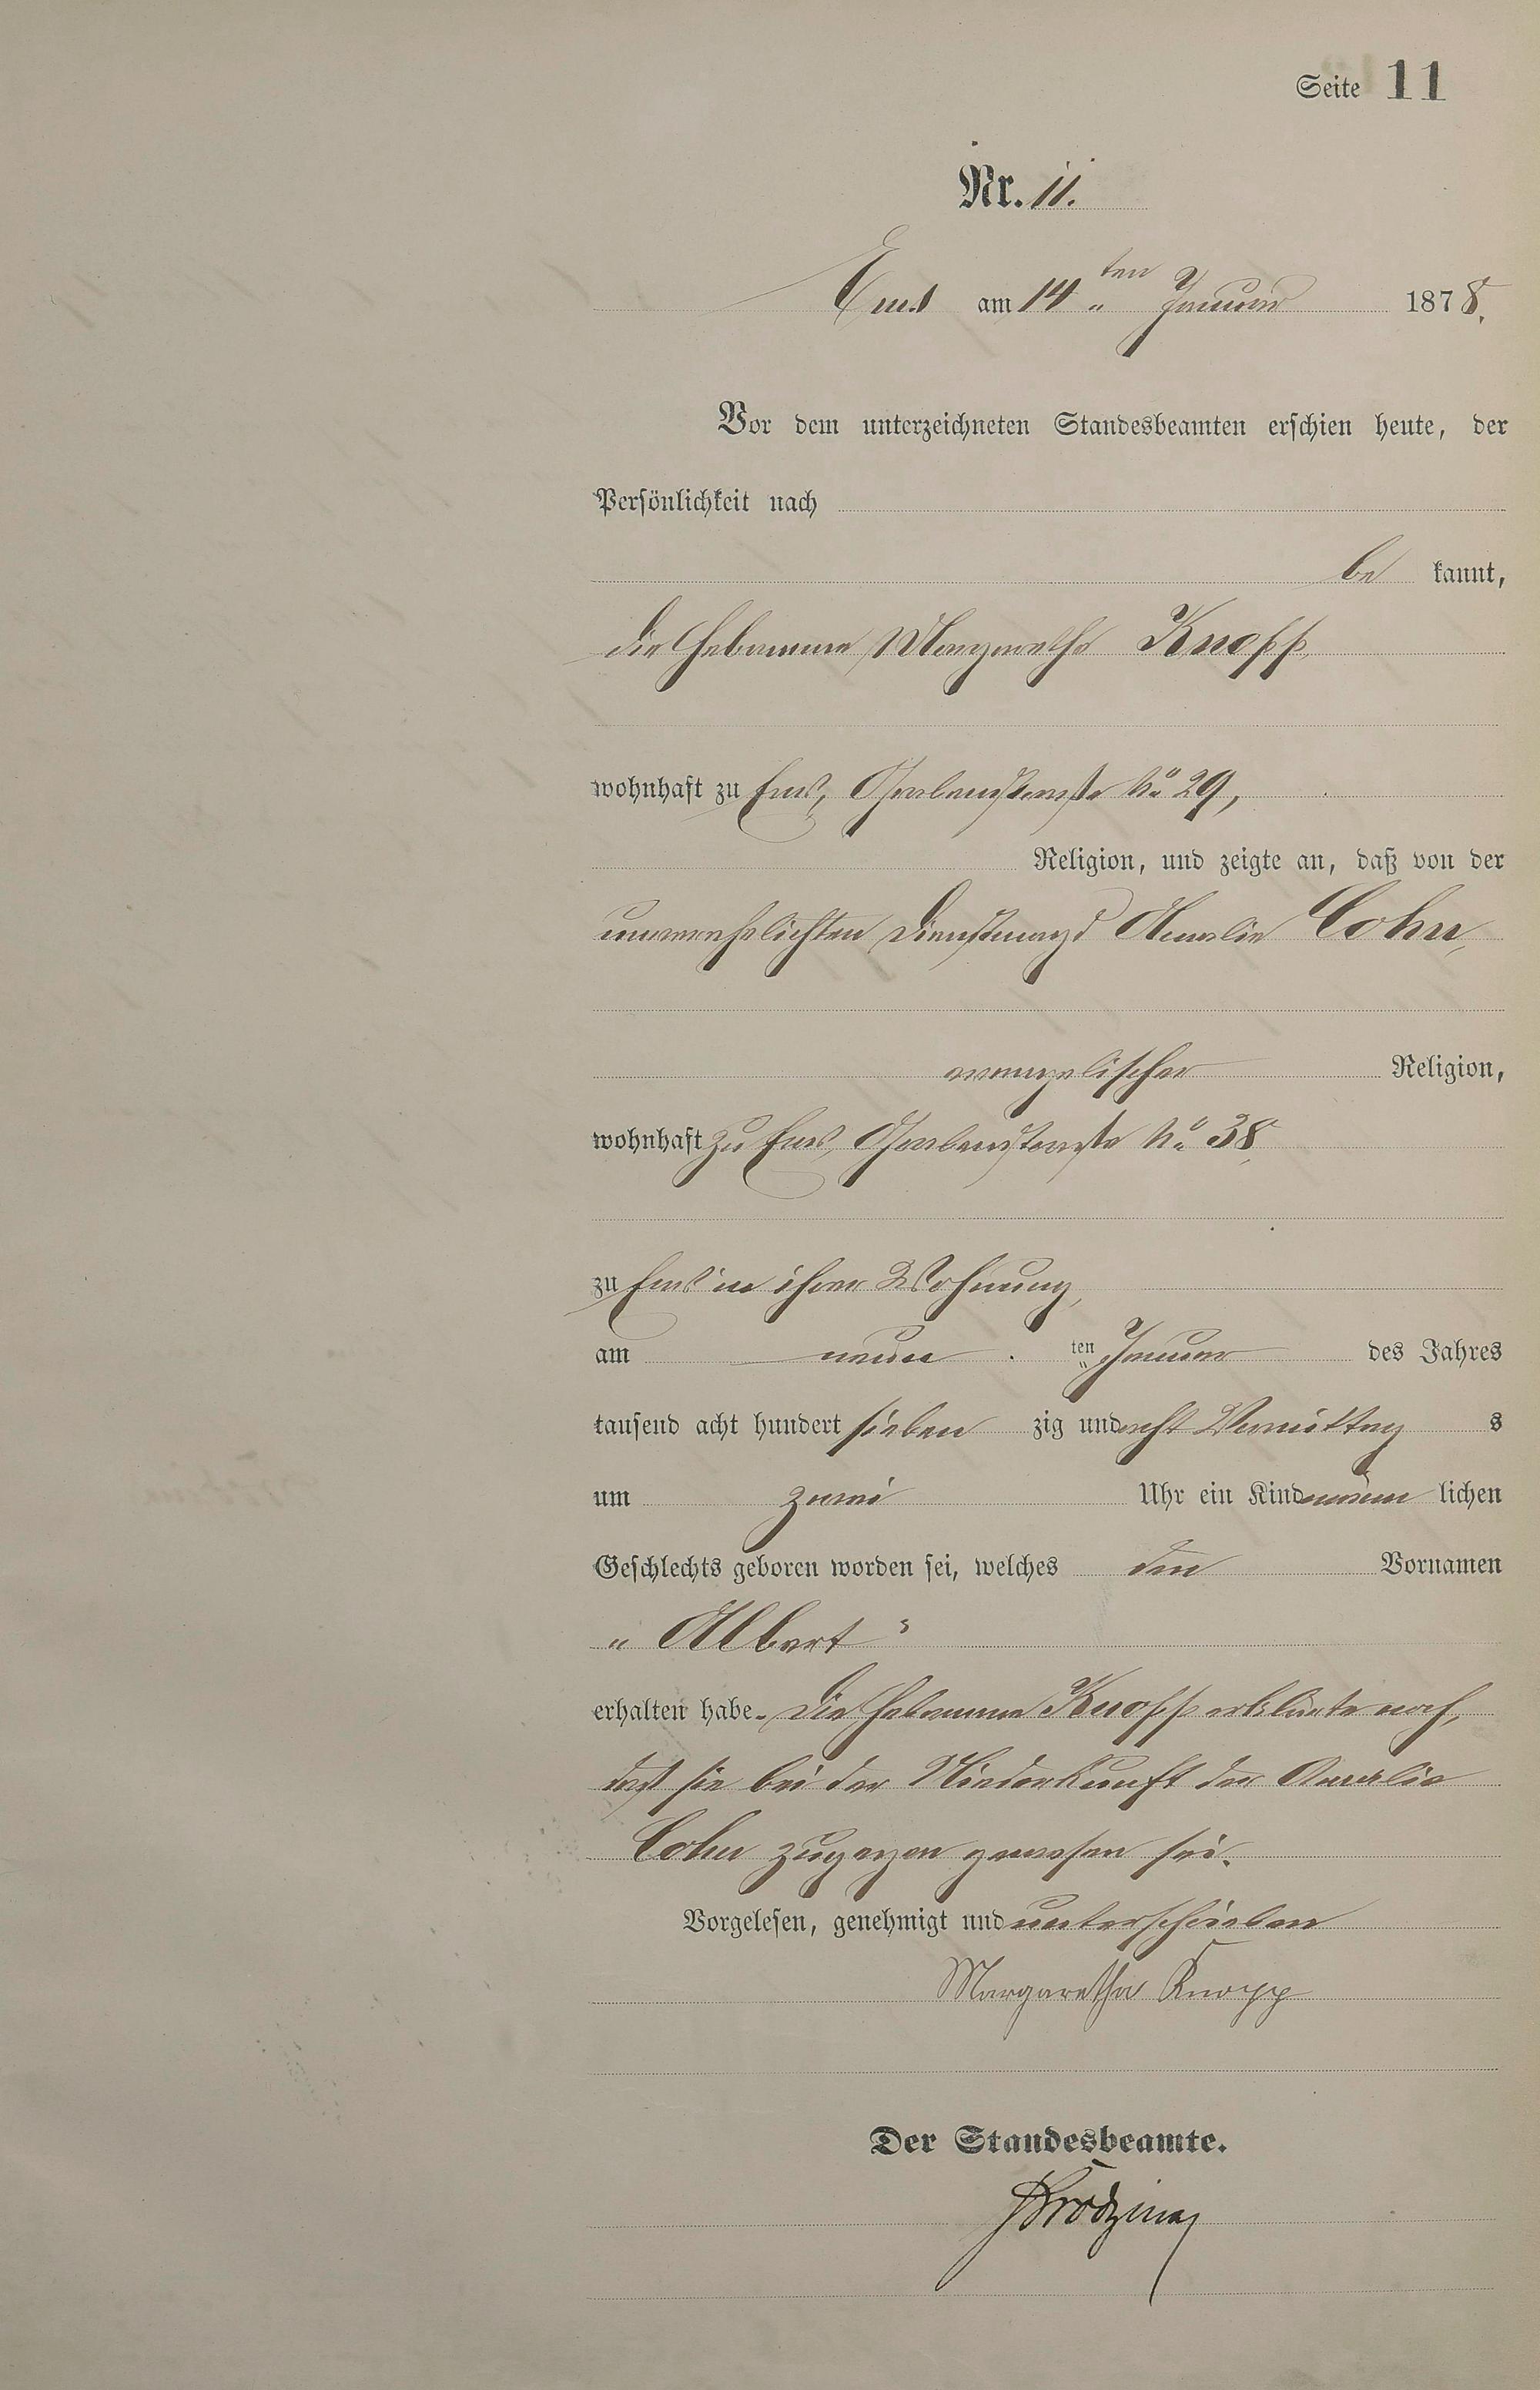 Seite 11
Nr. 11.
Ems am 14ten Januar 1878.
Vor dem unterzeichneten Standesbeamten erschien heute, der
Persönlichkeit nach
be kannt,
die Hebamme Margaretha Knopp,
wohnhaft zu Ems, Grabenstraße No 29,
Religion, und zeigte an, daß von der
unverehelichten Dienstmagd Amalie Cohn,
evangelischer Religion,
wohnhaft zu Ems, Grabenstraße No 38,
zu Ems in ihrer Wohnung,
am neun ten Januar des Jahres
tausend acht hundert sieben zig und acht Vormittag s
um zwei Uhr ein Kind männ lichen
Geschlechts geboren worden sei, welches den Vornamen
„Albert"
erhalten habe. Die Hebamme Knopp erklärte noch,
daß sie bei der Niederkunft der Amalie
Cohn zugegen gewesen sei.
Vorgelesen, genehmigt und unterschrieben
Margaretha Knopp
Der Standesbeamte.